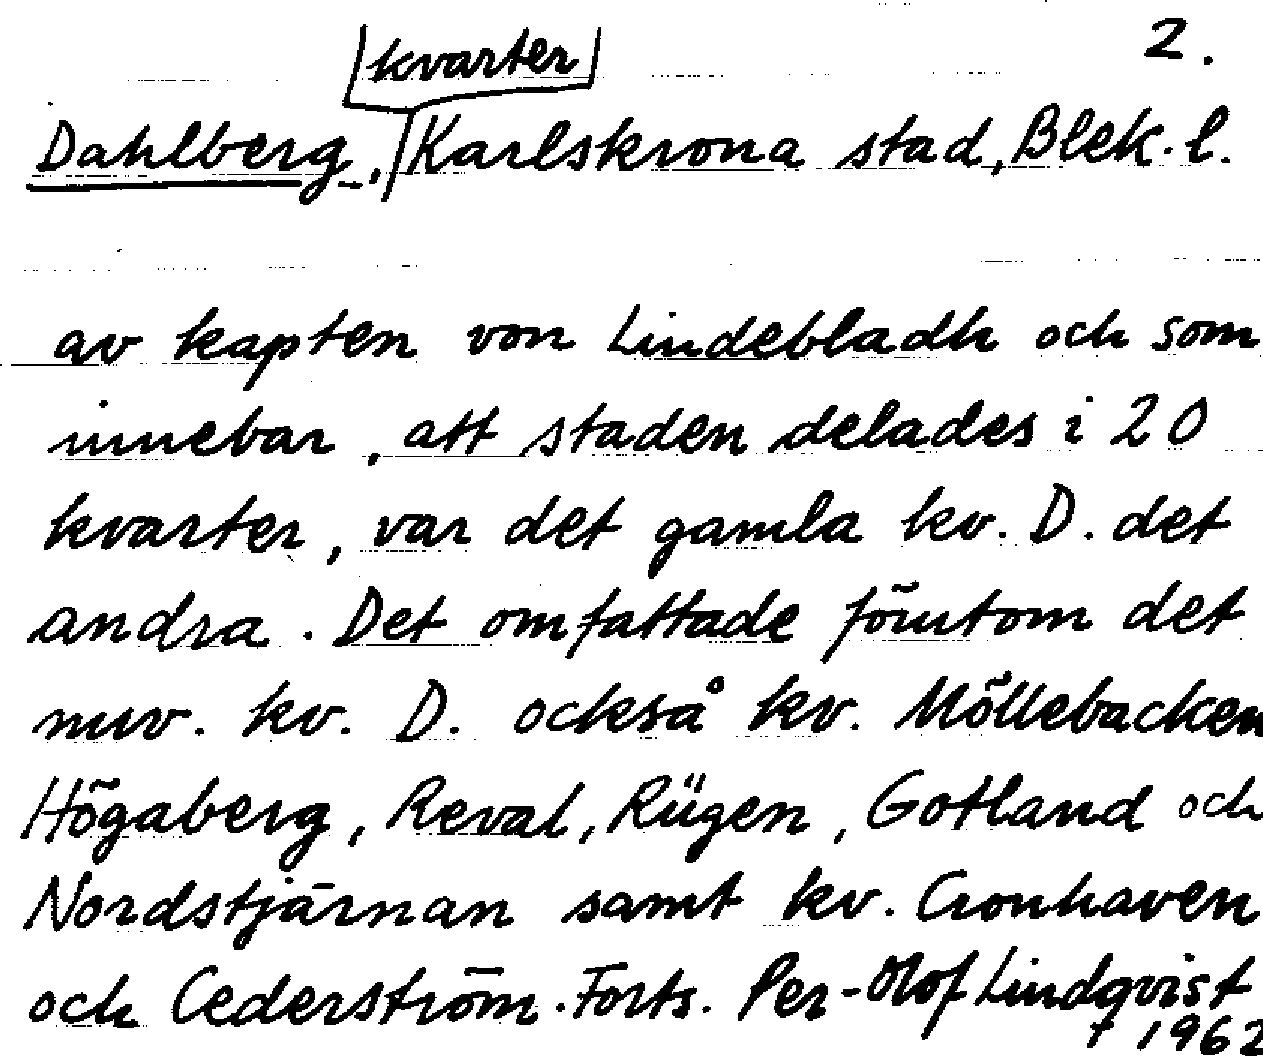 kvarter
2.
Dahlberg, Karlskrona stad, Blek. l.
av kapten von Lindebladh och som
innebar, att staden delades i 20
kvarter, var det gamla kv. D. det
andra. Det omfattade förutom det
nuv. kv. D. också kv. Möllebacken
Högaberg, Reval, Rügen, Gotland och
Nordstjärnan samt kv. Cronhaven
och Cederström. Forts. Per-Olof Lindqvist
† 1962